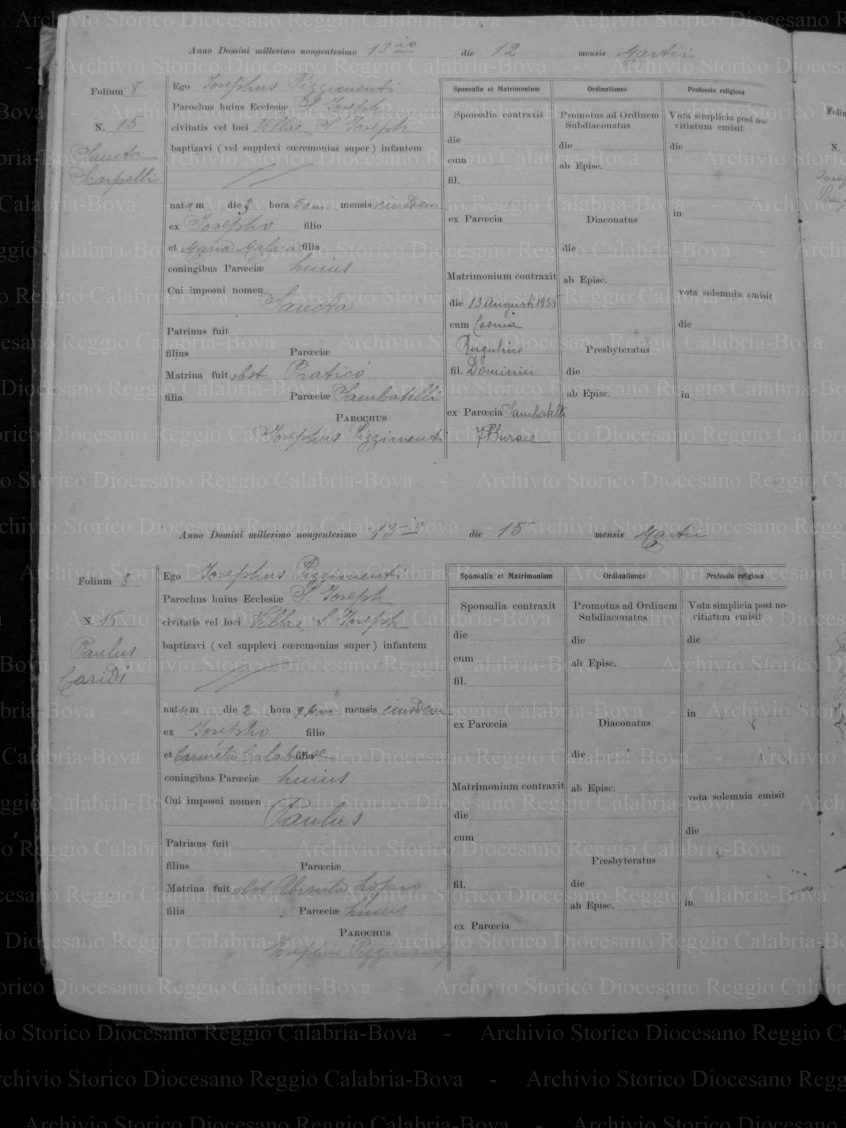 Anno Domini millesimo nongentesimo 13io die 12 mensis Martii
Folium 8
N. 15
Sancta
Scarpelli
Ego Iosephus Pizzimenti
Parochus huius Ecclesiæ S. Ioseph
civitatis vel loci Villae S. Ioseph
baptizavi ( vel supplevi cœremonias super ) infantem
natam die 3 hora 5 am mensis eiusdem
ex Iosepho filio
et Maria filia
coniugibus Parœciæ huius
Cui imposui nomen
Sancta
Patrinus fuit
filius Parœciæ
Matrina fuit obst. Praticò
filia Parœciæ Sambatelli
PAROCHUS
Iosephus Pizzimenti
Sponsalia et Matrimonium
Sponsalia contraxit
die
cum
fil.
ex Parœcia
Matrimonium contraxit
die 13 Augusti 1935
cum Cosma
fil. Dominici
ex Parœcia Sambatelli
Ordinationes
Promotus ad Ordinem
Subdiaconatus
die
ab Episc.
Diaconatus
die
ab Episc.
Presbyteratus
die
ab Episc.
Professio religiosa
Vota simplicia post no-
vitiatum emisit
die
in
vota solemnia emisit
die
in
Anno Domini millesimo nongentesimo 13io die 15 mensis Martii
Folium 8
N. 16
Paulus
Caridi
Ego Iosephus Pizzimenti
Parochus huius Ecclesiæ S. Ioseph
civitatis vel loci Villae S. Ioseph
baptizavi ( vel supplevi cœremonias super ) infantem
natum die 2 hora 9 pm mensis eiusdem
ex Iosepho filio
et Carmela Calabrese filia
coniugibus Parœciæ huius
Cui imposui nomen
Paulus
Patrinus fuit
filius Parœciæ
Matrina fuit obst. Ursula
filia Parœciæ huius
PAROCHUS
Iosephus Pizzimenti
Sponsalia et Matrimonium
Sponsalia contraxit
die
cum
fil.
ex Parœcia
Matrimonium contraxit
die
cum
fil.
ex Parœcia
Ordinationes
Promotus ad Ordinem
Subdiaconatus
die
ab Episc.
Diaconatus
die
ab Episc.
Presbyteratus
die
ab Episc.
Professio religiosa
Vota simplicia post no-
vitiatum emisit
die
in
vota solemnia emisit
die
in
Archivio Storico Diocesano Reggio Calabria-Bova